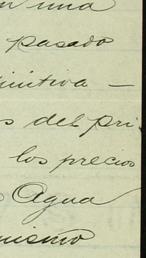 en una
pasado
initiva —
s del pri-
los precios
Agua
mismo